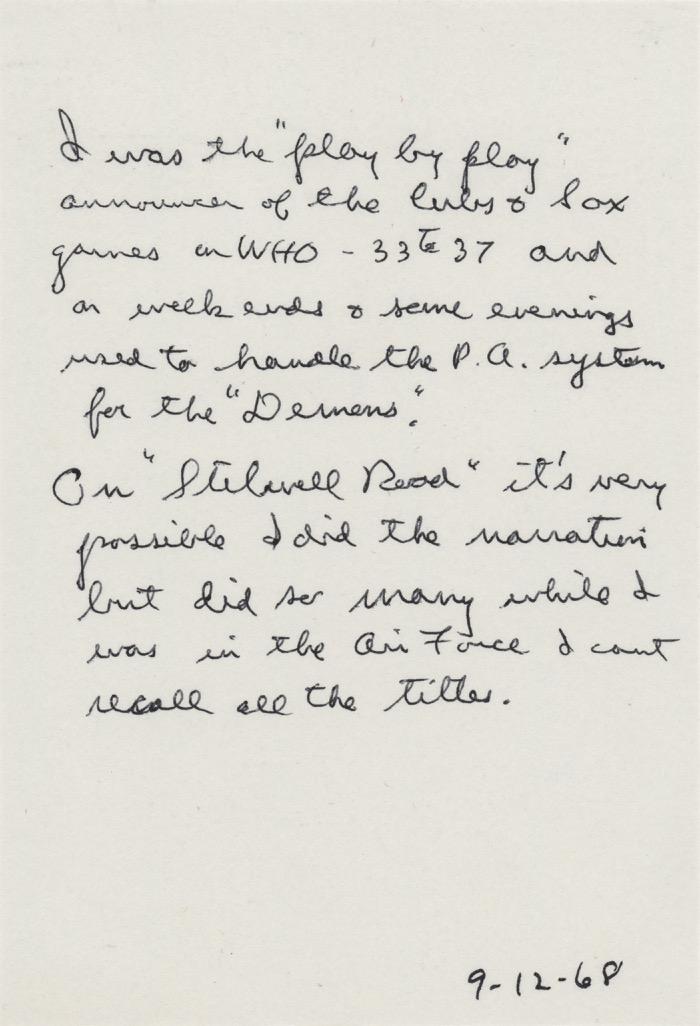 I was the "play by play"
announcer of the Cubs & Sox
games on WHO - 33 to 37 and
on week ends & some evenings
used to handle the P.A. system
for the "Demons".
On "Stilwell Road" it's very
possible I did the narration
but did so many while I
was in the Air Force I cant
recall all the titles.
9-12-68